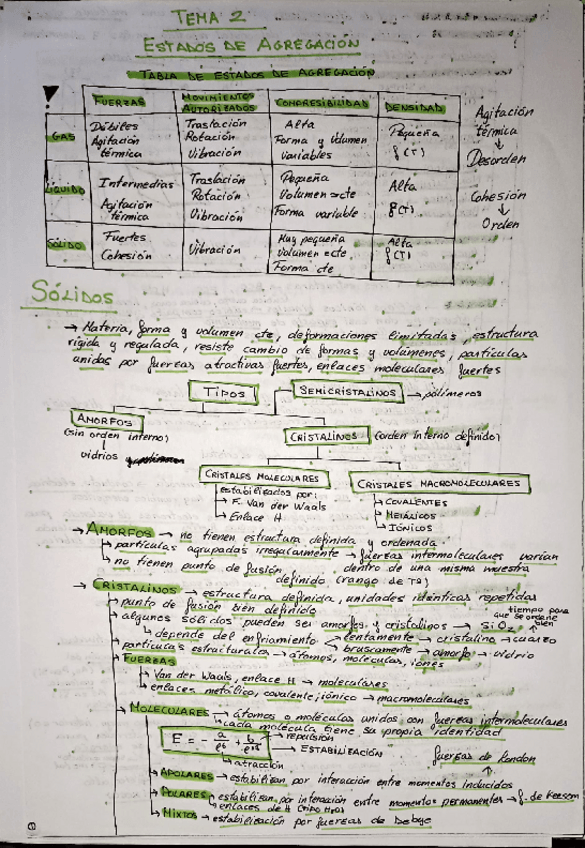 TEMA 2
ESTADOS DE AGREGACIÓN
TABLA DE ESTADOS DE AGREGACIÓN
FUERZAS MOVIMIENTOS AUTORIZADOS COMPRESIBILIDAD DENSIDAD
GAS
Débiles
Agitación
térmica
Traslación
Rotación
Vibración
Alta
Forma y volumen
variables
Pequeña
f(T)
LÍQUIDO
Intermedias
Agitación
térmica
Traslación
Rotación
Vibración
Pequeña
Volumen ≈cte
Forma variable
Alta
f(T)
SÓLIDO
Fuertes
Cohesión
Vibración
Muy pequeña
Volumen cte
Forma cte
Alta
f(T)
Agitación
térmica
↓
Desorden
Cohesión
↓
Orden
SÓLIDOS
→ Materia, forma y volumen cte, deformaciones limitadas, estructura
rígida y regulada, resiste cambio de formas y volúmenes, partículas
unidas por fuerzas atractivas fuertes, enlaces moleculares fuertes
TIPOS
SEMICRISTALINOS → polímeros
AMORFOS
(sin orden interno)
↓
vidrios
CRISTALINOS (orden interno definido)
CRISTALES MOLECULARES
estabilizados por:
→ F. Van der Waals
→ Enlace H
CRISTALES MACROMOLECULARES
→ COVALENTES
→ METÁLICOS
→ IÓNICOS
→ AMORFOS → no tienen estructura definida y ordenada
→ partículas agrupadas irregularmente → fuerzas intermoleculares varían
dentro de una misma muestra
→ no tienen punto de fusión
definido (rango de Tª)
→ CRISTALINOS → estructura definida, unidades idénticas repetidas
→ punto de fusión bien definido
→ algunos sólidos pueden ser amorfos y cristalinos → SiO2
tiempo para
que se ordene
bien
→ depende del enfriamiento
lentamente → cristalino → cuarzo
bruscamente → amorfo → vidrio
→ partículas estructurales → átomos, moléculas, iones
→ FUERZAS
→ Van der Waals, enlace H → moleculares
→ enlaces metálico, covalente, iónico → macromoleculares
→ MOLECULARES → átomos o moléculas unidos con fuerzas intermoleculares
→ cada molécula tiene su propia identidad
→ repulsión
→ ESTABILIZACIÓN
→ atracción
fuerzas de London
→ APOLARES → estabilizan por interacción entre momentos inducidos
→ POLARES → estabilizan por interacción entre momentos permanentes → f. de Keesom
→ enlaces de H (tipo H2O)
→ MIXTOS → estabilización por fuerzas de Debye